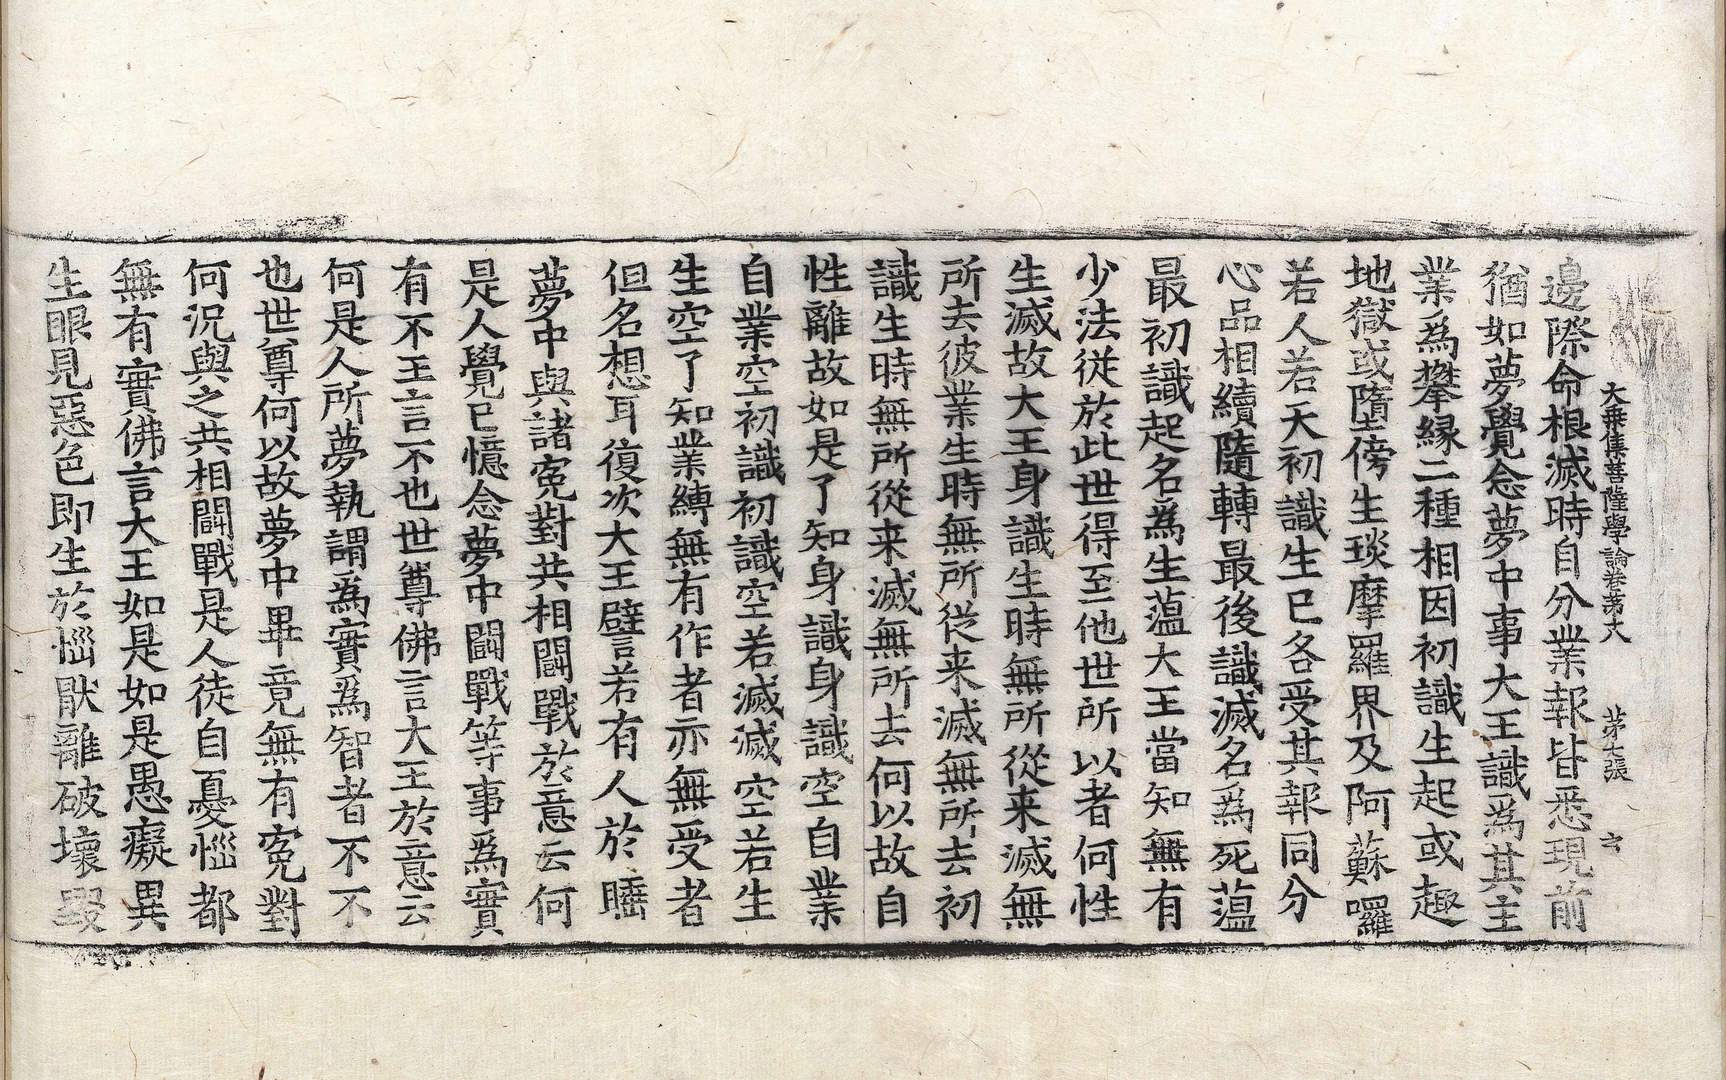 大乘集菩薩學論卷第十八 第七張 云
邊際命根滅時自分業報皆悉現前
猶如夢覺念夢中事大王識為其主
業為攀縁二種相因初識生起或趣
地獄或墮傍生琰摩羅界及阿蘇囉
若人若天初識生已各受其報同分
心品相續隨轉最後識滅名為死蕰
最初識起名為生蕰大王當知無有
少法從於此世得至他世所以者何性
生滅故大王身識生時無所從来滅無
所去彼業生時無所從来滅無所去初
識生時無所從来滅無所去何以故自
性離故如是了知身識身識空自業
自業空初識初識空若滅滅空若生
生空了知業縛無有作者亦無受者
但名想耳復次大王譬若有人於睡
夢中與諸寃對共相鬪戰於意云何
是人覺已憶念夢中鬪戰等事為實
有不王言不也世尊佛言大王於意云
何是人所夢執謂為實為智者不不
也世尊何以故夢中畢竟無有寃對
何況與之共相鬪戰是人徒自憂惱都
無有實佛言大王如是如是愚癡異
生眼見惡色即生於惱猒離破壞毀